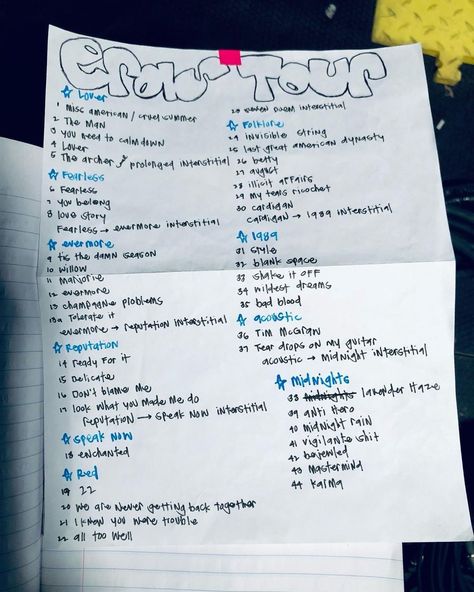 Eras Tour
☆ Lover
1 misc american / cruel summer
2 The Man
3 you need to calm down
4 Lover
5 The archer } prolonged interstitial
☆ Fearless
6 Fearless
7 you belong
8 love story
Fearless → evermore interstitial
☆ evermore
9 tis the damn season
10 willow
11 marjorie
12 evermore
13 champagne ploblems
13a Tolerate it
evermore → reputation interstitial
☆ Reputation
14 Ready For it
15 Delicate
16 Don't blame me
17 look what you Made me Do
reputation → speak Now interstitial
☆ Speak Now
18 enchanted
☆ Red
19 22
20 we are Never getting back together
21 I knew you were trouble
22 all too well
23 poem interstitial
☆ Folklore
24 Invisible string
25 last great american dynasty
26 betty
27 august
28 illicit affairs
29 my tears ricochet
30 cardigan
cardigan → 1989 interstitial
☆ 1989
31 style
32 blank space
33 shake it off
34 wildest dreams
35 bad blood
☆ acoustic
36 Tim McGraw
37 Tear drops on my guitar
acoustic → midnight interstitial
☆ Midnights
38 midnights lavander Haze
39 anti Hero
40 midnight rain
41 vigilante shit
42 bejeweled
43 mastermind
44 karma